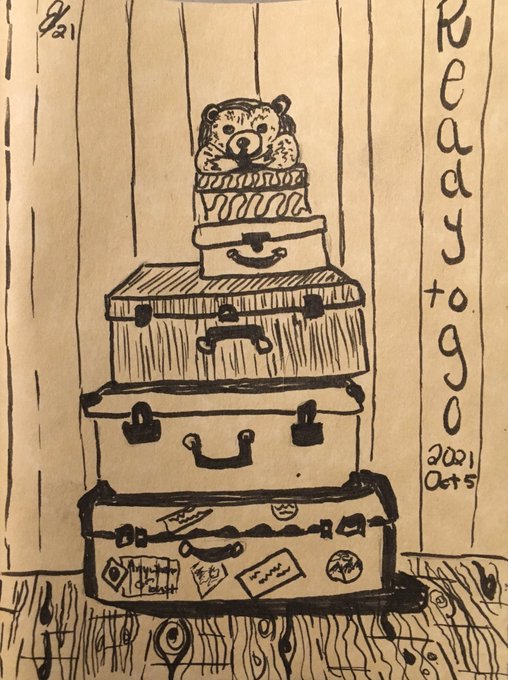 21
Ready to go
2021
Oct 5
or